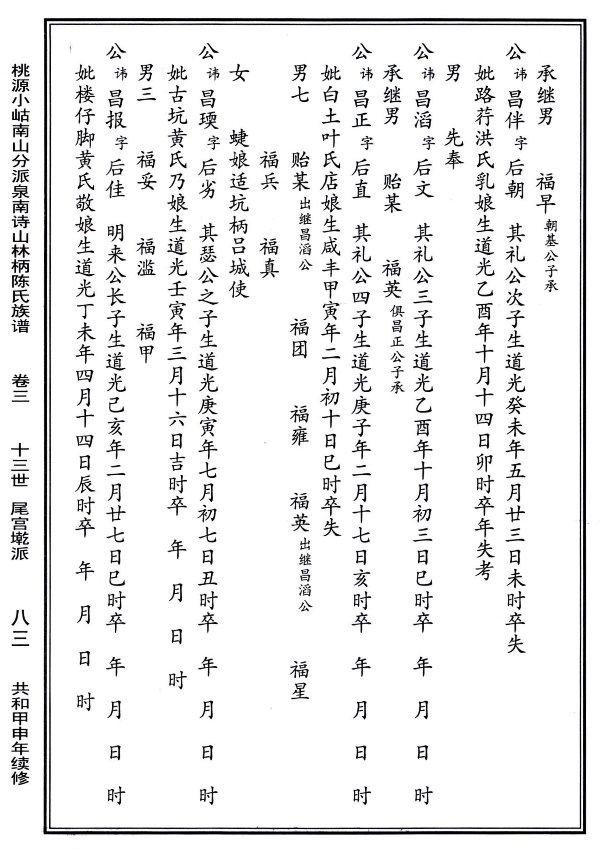 承继男　福早 朝基公子承
公 讳 昌伴 字 后朝　其礼公次子生道光癸未年五月廿三日未时卒失
妣路荇洪氏乳娘生道光乙酉年十月十四日卯时卒年失考
男　先奉
公 讳 昌滔 字 后文　其礼公三子生道光乙酉年十月初三日巳时卒　年　月　日　时
承继男　贻某　福英 俱昌正公子承
公 讳 昌正 字 后直　其礼公四子生道光庚子年二月十七日亥时卒　年　月　日　时
妣白土叶氏店娘生咸丰甲寅年二月初十日巳时卒失
男七　贻某 出继昌滔公　福团　福雍　福英 出继昌滔公　福星
福兵　福真
女　婕娘适坑柄吕城使
公 讳 昌瑛 字 后劣　其瑟公之子生道光庚寅年七月初七日丑时卒　年　月　日　时
妣古坑黄氏乃娘生道光壬寅年三月十六日吉时卒　年　月　日　时
男三　福妥　福滥　福甲
公 讳 昌报 字 后佳　明来公长子生道光己亥年二月廿七日巳时卒　年　月　日　时
妣楼仔脚黄氏敬娘生道光丁未年四月十四日辰时卒　年　月　日　时
桃源小岵南山分派泉南诗山林柄陈氏族谱　卷三　十三世　尾宫墘派　八三　共和甲申年续修